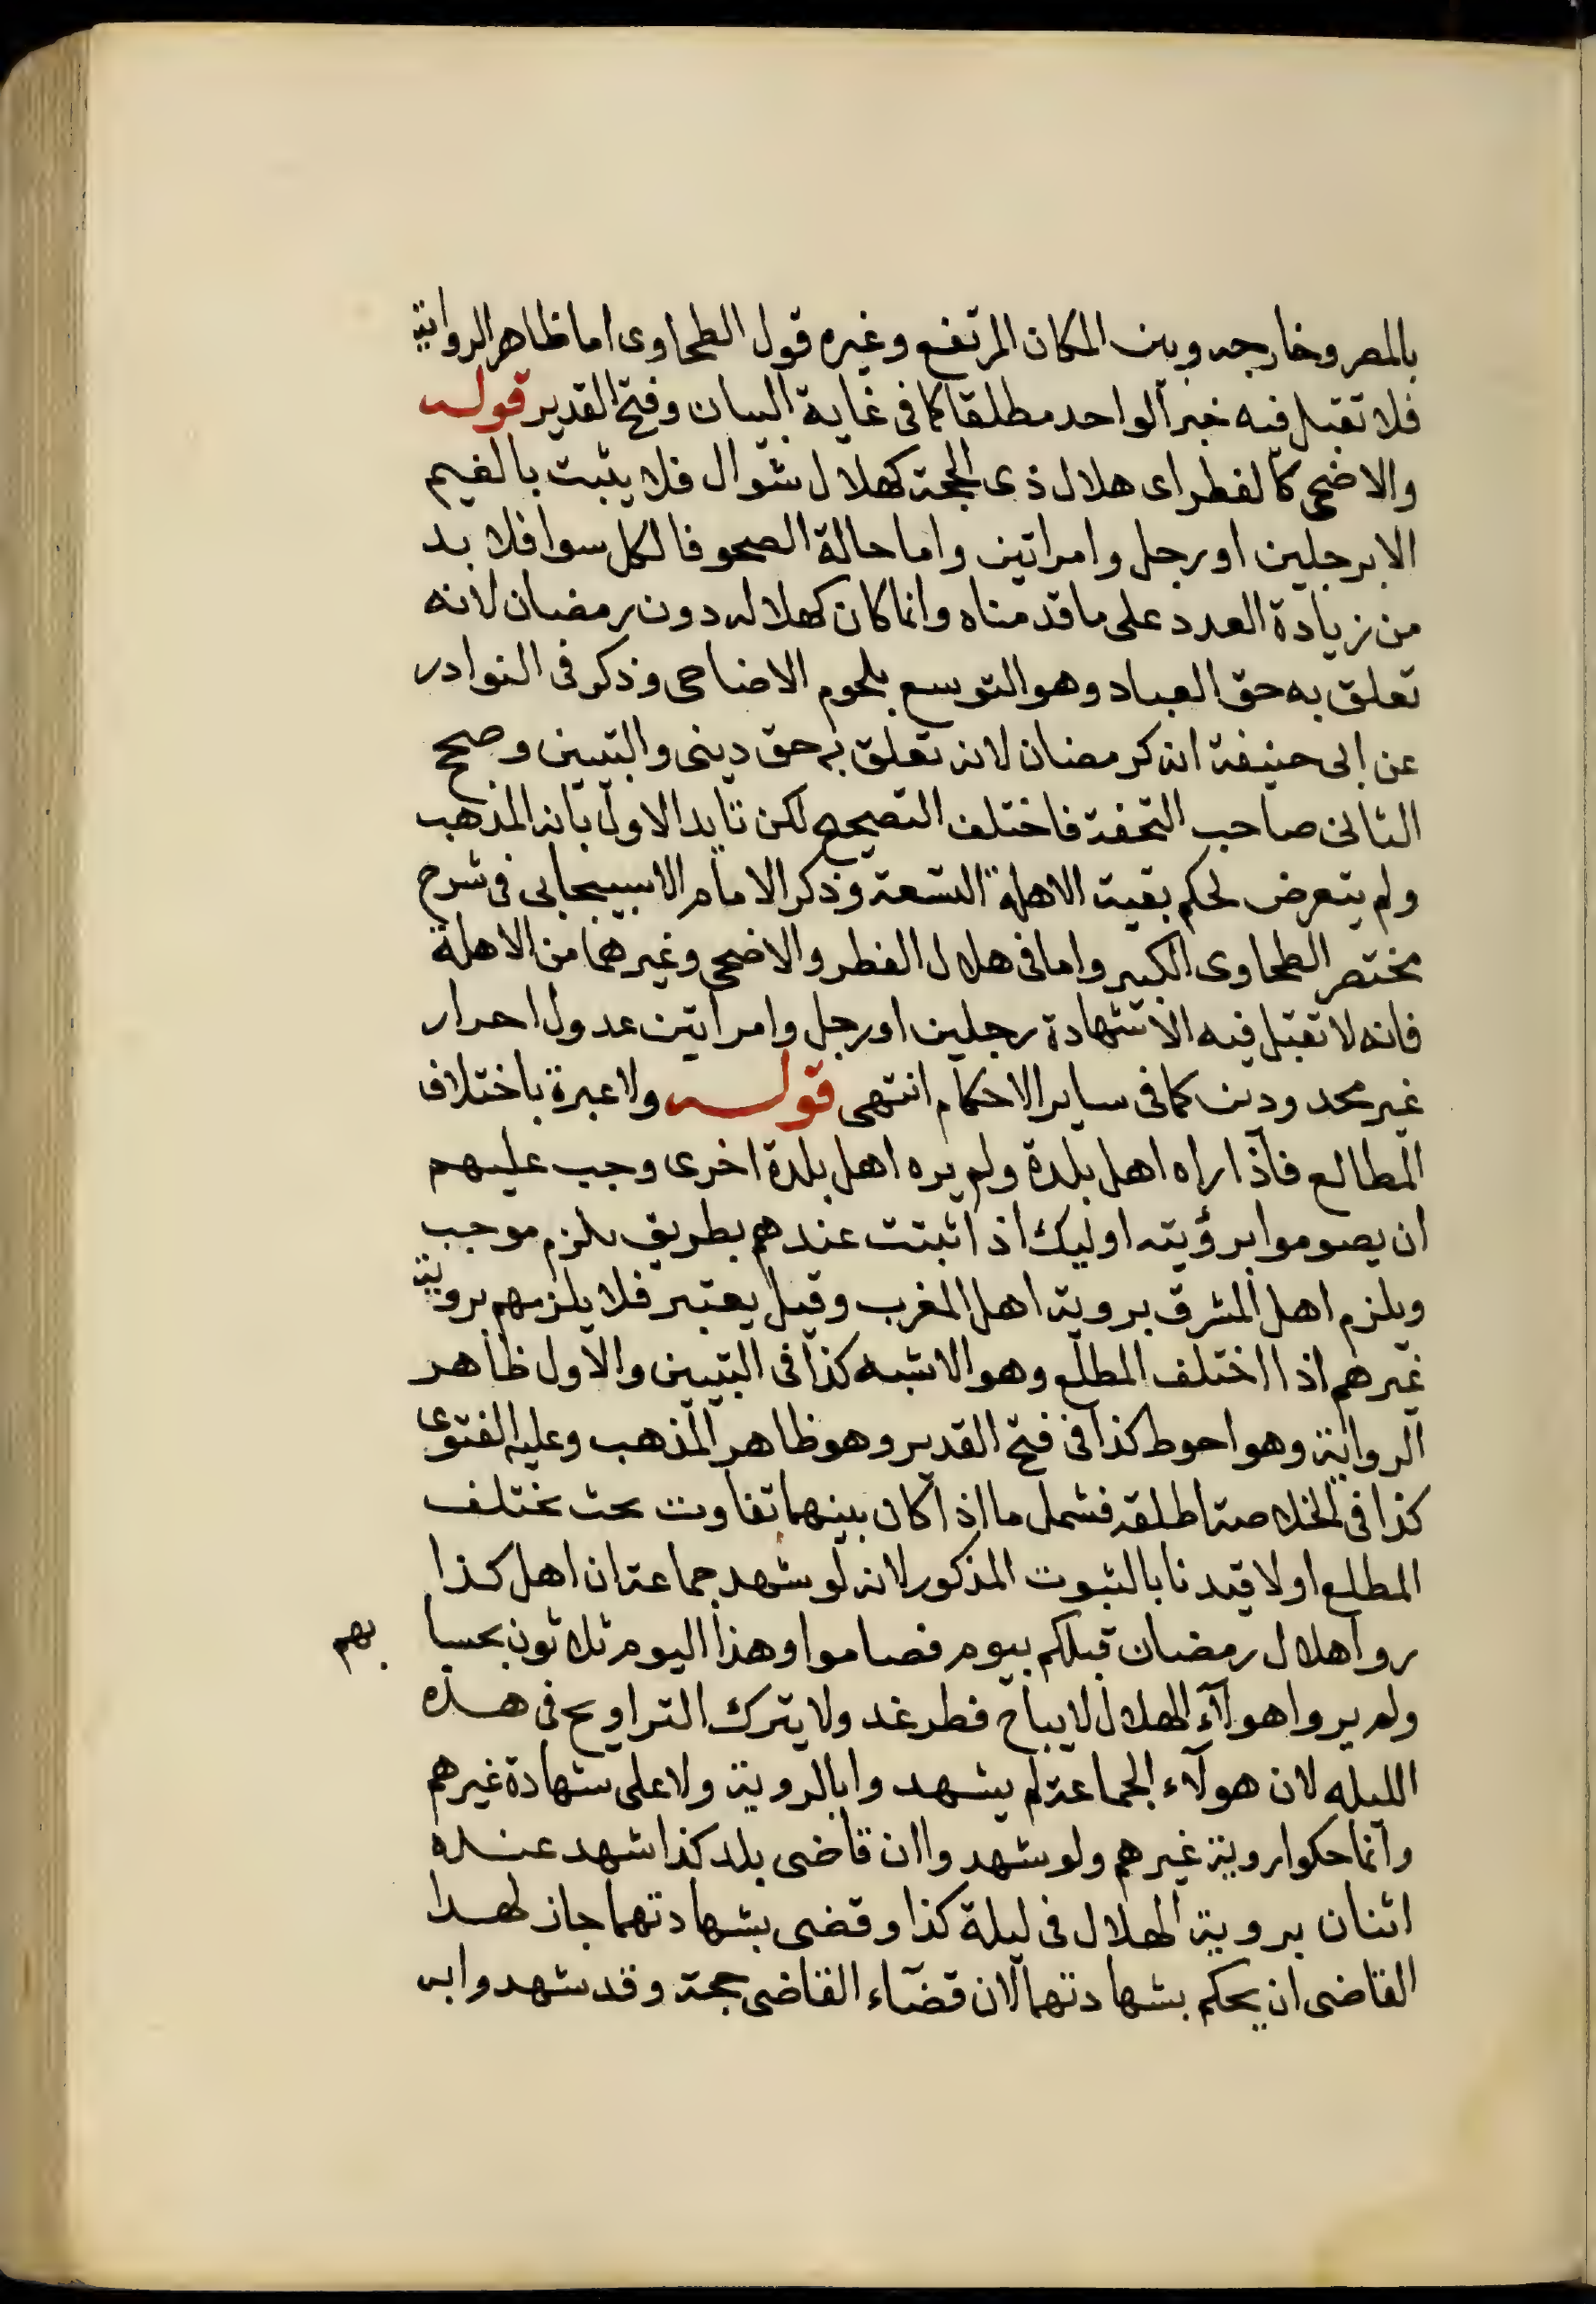 بالمصر وخارجه وبين المكان المرتفع وغيره قول الطحاوى اما ظاهر الرواية
فلا تقبل فيه خبر الواحد مطلقا كما فى غاية البيان وفتح القدير قوله
والاضحى كالفطر اى هلال ذى الحجة كهلال شوال فلا يثبت بالغيم
الا برجلين او رجل وامراتين واما حالة الصحو فالكل سوا فلا بد
من زيادة العدد على ما قدمناه وانما كان كهلاله دون رمضان لانه
تعلق به حق العباد وهو التوسع بلحوم الاضاحى وذكر فى النوادر
عن ابى حنيفة انه كرمضان لانه تعلق به حق دينى والتبيين وصحح
الثانى صاحب التحفة فاختلف التصحيح لكن تايد الاول بانه المذهب
ولم يتعرض لحكم بقية الاهلة التسعة وذكر الامام الاسبيجابى فى شرح
مختصر الطحاوى الكبير واما فى هلال الفطر والاضحى وغيرهما من الاهلة
فانه لا تقبل فيه الا شهادة رجلين او رجل وامراتين عدول احرار
غير محدودين كما فى ساير الاحكام انتهى قوله ولا عبرة باختلاف
المطالع فاذا راه اهل بلدة ولم يره اهل بلدة اخرى وجب عليهم
ان يصوموا برؤيته اوليك اذا ثبتت عندهم بطريق يلزم موجب
ويلزم اهل المشرق بروية اهل المغرب وقيل يعتبر فلا يلزمهم بروية
غيرهم اذا اختلف المطلع وهو الاشبه كذا فى التبيين والاول ظاهر
الرواية وهو احوط كذا فى فتح القدير وهو ظاهر المذهب وعليه الفتوى
كذا فى الخلاصة اطلقه فشمل ما اذا كان بينهما تفاوت بحث يختلف
المطلع اولا قيدنا بالثبوت المذكور لانه لو شهد جماعة ان اهل كذا
روا هلال رمضان قبلكم بيوم فصاموا وهذا اليوم ثلاثون بحسا بهم
ولم يروا هولاء الهلال لا يباح فطر غد ولا يترك التراويح فى هذه
الليله لان هولاء الجماعة لم يشهدوا بالروية ولا على شهادة غيرهم
وانما حكوا روية غيرهم ولو شهدوا ان قاضى بلد كذا شهد عنده
اثنان بروية الهلال فى ليلة كذا وقضى بشهادتهما جاز لهدا
القاضى ان يحكم بشهادتهما لان قضاء القاضى حجة وقد شهدوا به